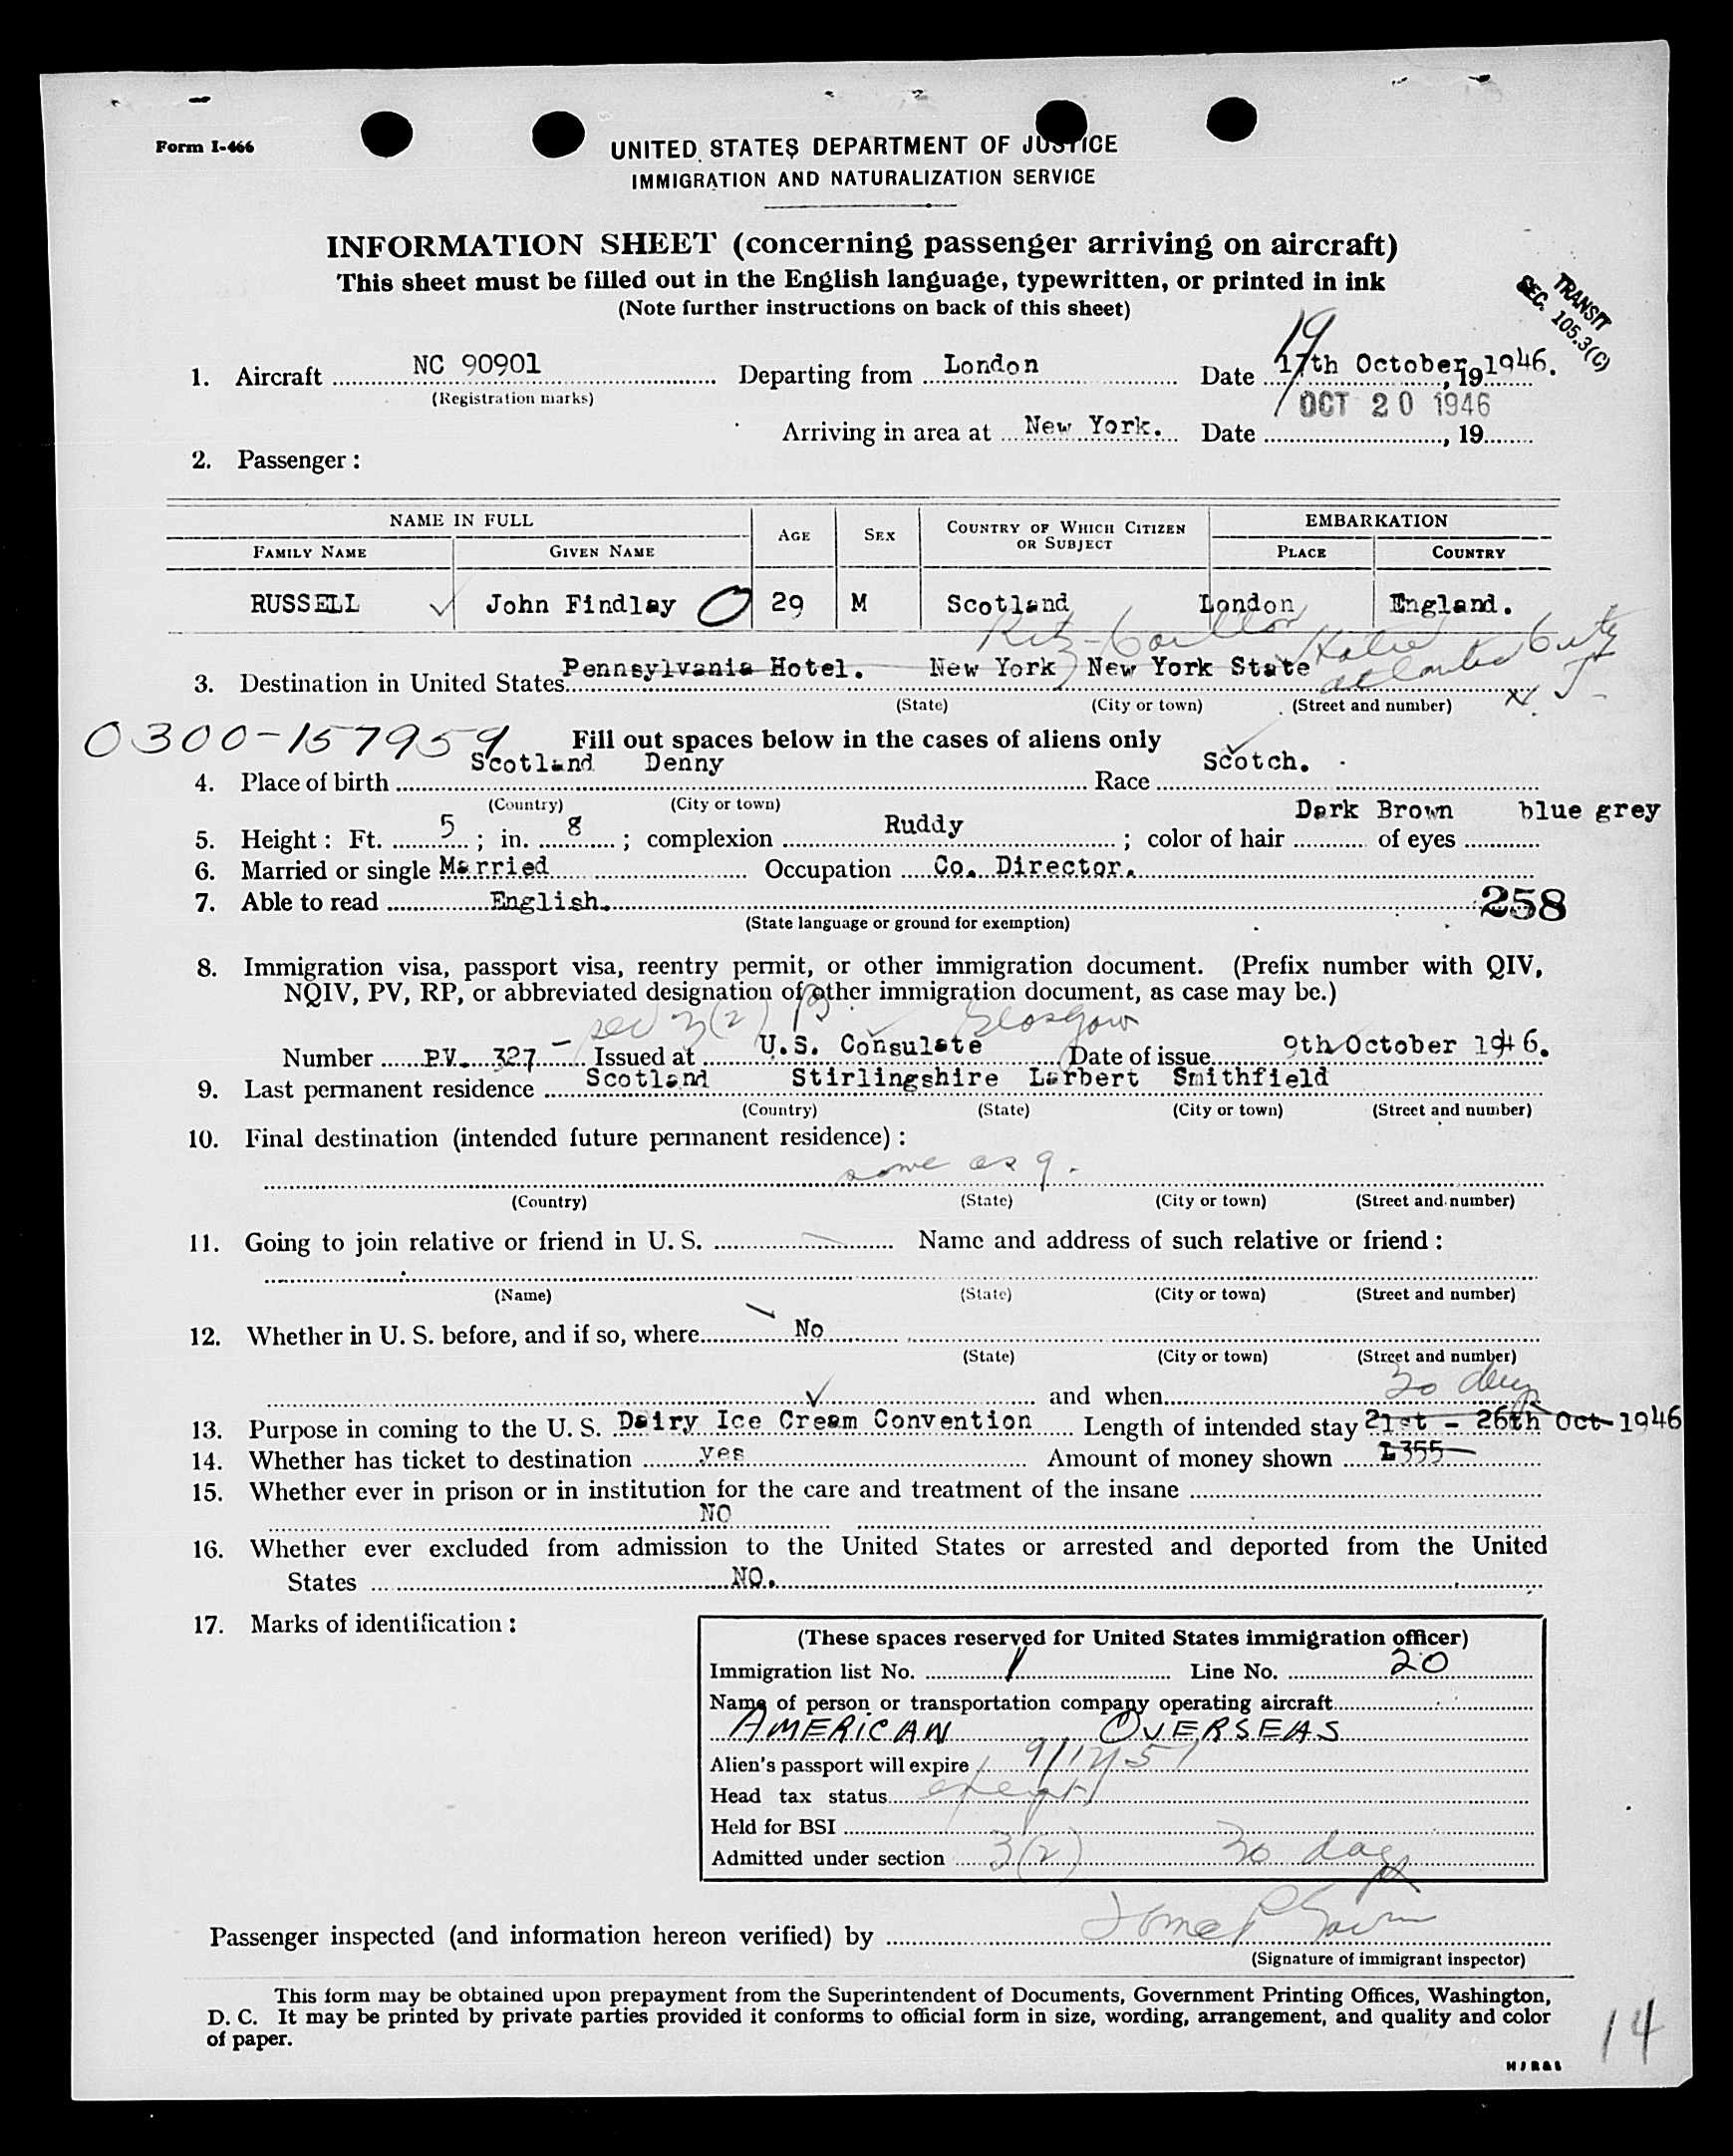 Form I-466
UNITED STATES DEPARTMENT OF JUSTICE
IMMIGRATION AND NATURALIZATION SERVICE
INFORMATION SHEET (concerning passenger arriving on aircraft)
This sheet must be filled out in the English language, typewritten, or printed in ink
(Note further instructions on back of this sheet)
TRANSIT
SEC. 105.3(C)
19
1. Aircraft NC 90901 Departing from London Date 17th October, 19 1946.
(Registration marks)
OCT 20 1946
Arriving in area at New York. Date , 19
2. Passenger :
NAME IN FULL AGE SEX COUNTRY OF WHICH CITIZEN OR SUBJECT EMBARKATION
FAMILY NAME GIVEN NAME PLACE COUNTRY
RUSSELL John Findlay 29 M Scotland London England.
Ritz-Carlton Hotel Atlantic City
3. Destination in United States Pennsylvania Hotel. New York New York State N. J.
(State) (City or town) (Street and number)
0300-157959 Fill out spaces below in the cases of aliens only
4. Place of birth Scotland Denny Race Scotch.
(Country) (City or town)
5. Height : Ft. 5 ; in. 8 ; complexion Ruddy ; color of hair Dark Brown of eyes blue grey
6. Married or single Married Occupation Co. Director.
7. Able to read English. 258
(State language or ground for exemption)
8. Immigration visa, passport visa, reentry permit, or other immigration document. (Prefix number with QIV,
NQIV, PV, RP, or abbreviated designation of other immigration document, as case may be.)
sec 3(2) Glasgow
Number P.V. 327 Issued at U.S. Consulate Date of issue 9th October 1946.
9. Last permanent residence Scotland Stirlingshire Larbert Smithfield
(Country) (State) (City or town) (Street and number)
10. Final destination (intended future permanent residence) :
same as 9.
(Country) (State) (City or town) (Street and number)
11. Going to join relative or friend in U. S. Name and address of such relative or friend :
(Name) (State) (City or town) (Street and number)
12. Whether in U. S. before, and if so, where No
(State) (City or town) (Street and number)
and when
30 days
13. Purpose in coming to the U. S. Dairy Ice Cream Convention Length of intended stay 21st - 26th Oct 1946
14. Whether has ticket to destination yes Amount of money shown £355
15. Whether ever in prison or in institution for the care and treatment of the insane
NO
16. Whether ever excluded from admission to the United States or arrested and deported from the United
States NO.
17. Marks of identification :
(These spaces reserved for United States immigration officer)
Immigration list No. 1 Line No. 20
Name of person or transportation company operating aircraft
AMERICAN OVERSEAS
Alien's passport will expire 9/12/51
Head tax status exempt
Held for BSI
Admitted under section 3(2) 30 days
Passenger inspected (and information hereon verified) by
(Signature of immigrant inspector)
This form may be obtained upon prepayment from the Superintendent of Documents, Government Printing Offices, Washington,
D. C. It may be printed by private parties provided it conforms to official form in size, wording, arrangement, and quality and color
of paper.
14